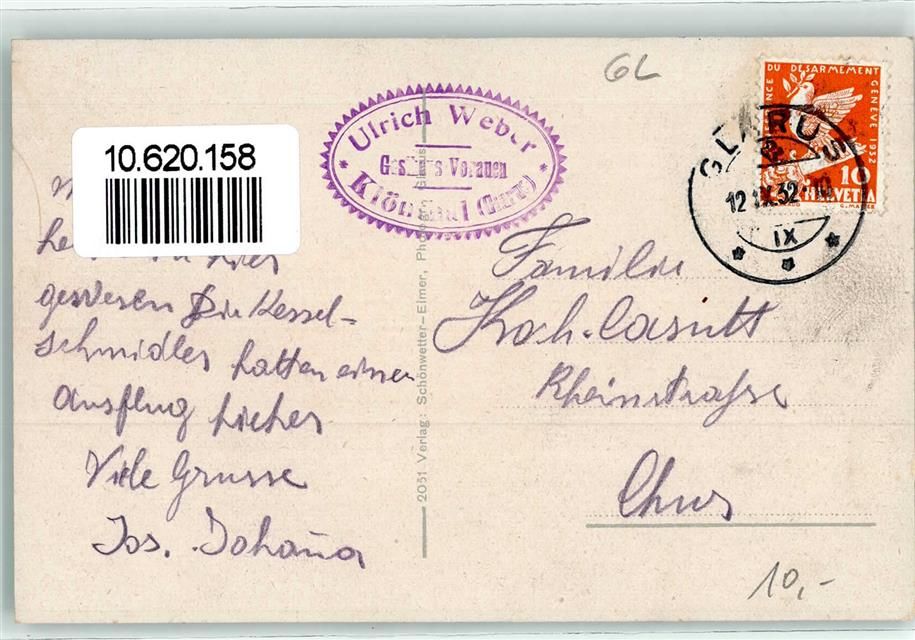 GL
10.620.158
Ulrich Weber
Gasthaus Vorauen
Klöntal (Glarus)
CONFERENCE DU DÉSARMEMENT GENÈVE 1932
10
HELVETIA
GLARUS
12.IX.32
IX
gewesen Die Kessel-
schmidler hatten einen
Ausflug hieher
Viele Grüsse
Jos. Johana
2051 Verlag: Schönwetter-Elmer, Photogr. Glarus
Familie
Koch-Casutt
Rheinstrasse
Chur
10,-